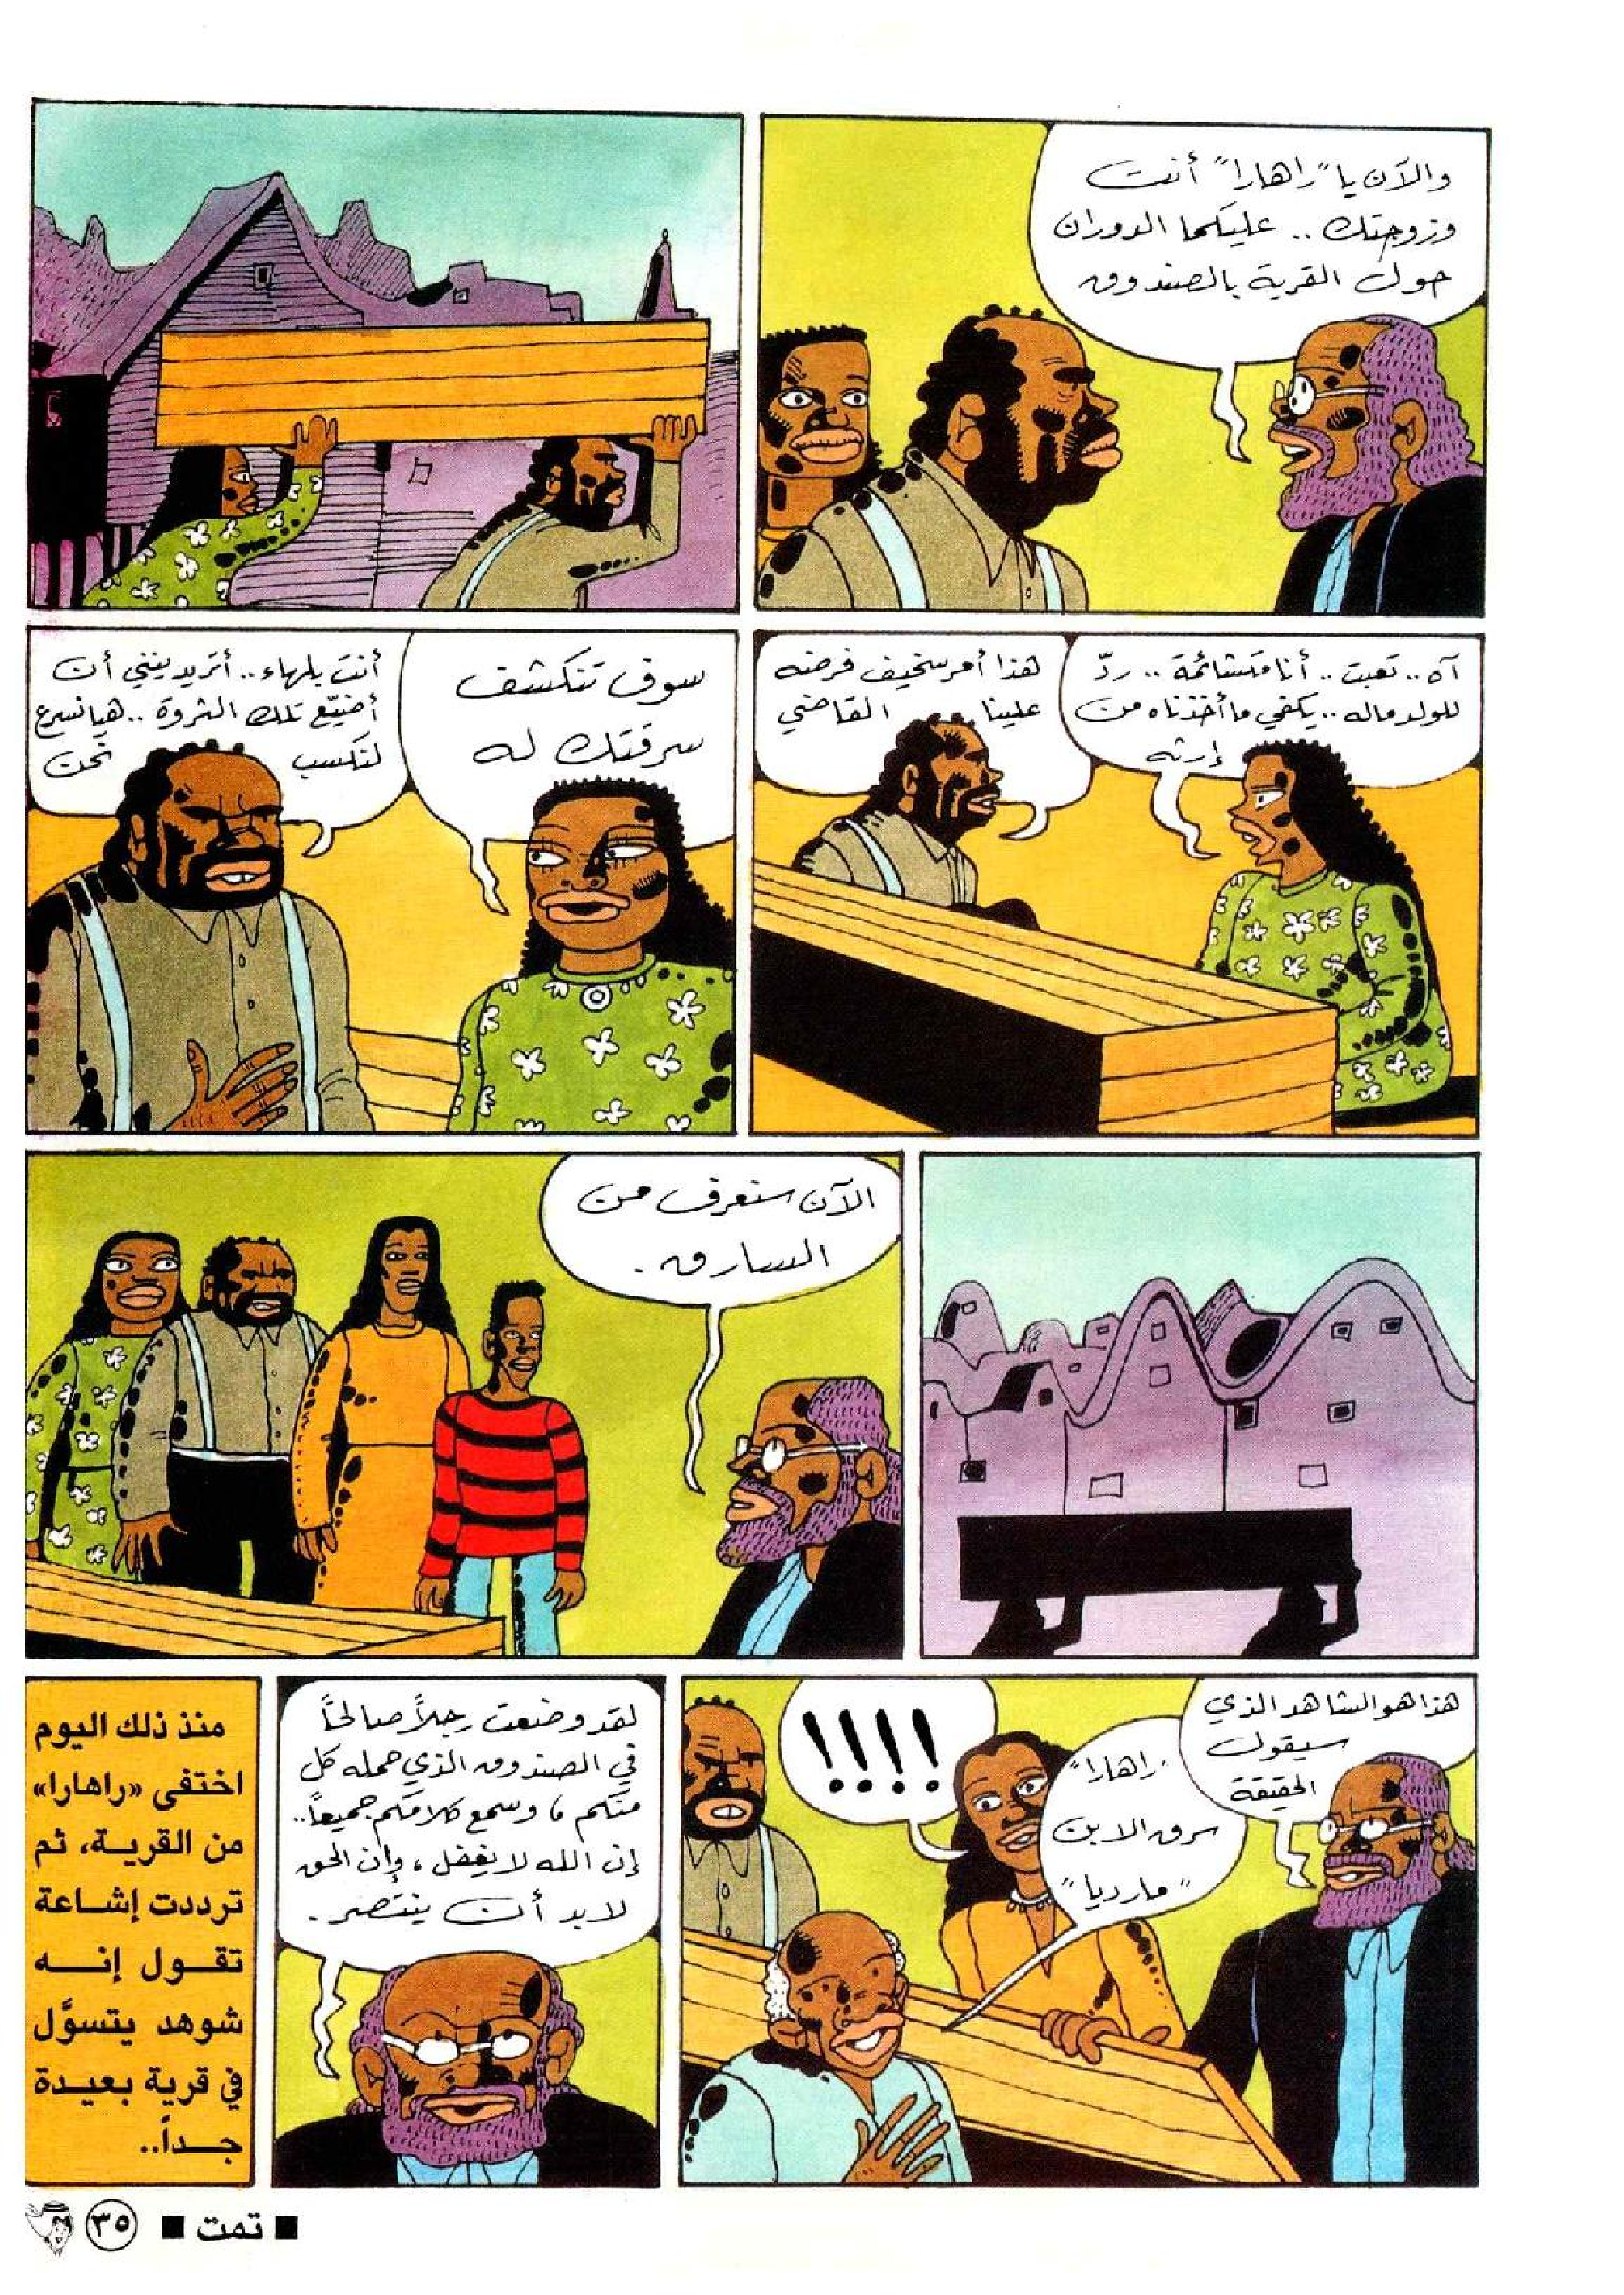 والآن يا "راهارا" أنت
وزوجتك .. عليكما الدوران
حول القرية بالصندوق
آه .. تعبت .. أنا متشائمة .. ردّ
للولد ماله .. يكفي ما أخذناه من
إرثه
هذا أمر سخيف فرضه
علينا القاضي
سوف تنكشف
سرقتك له
أنتِ بلهاء .. أتريدينني أن
أضيّع تلك الثروة .. هيا نسرع
لنكسب نحن
الآن سنعرف من
السارق .
هذا هو الشاهد الذي
سيقول
الحقيقة
"راهارا"
سرق الابن
"مارديا"
!!!!
لقد وضعت رجلاً صالحاً
في الصندوق الذي حمله كل
منكم ، وسمع كلامكم جميعاً ..
إن الله لا يغفل ، وإن الحق
لابد أن ينتصر .
منذ ذلك اليوم
اختفى «راهارا»
من القرية، ثم
ترددت إشاعة
تقول إنه
شوهد يتسوَّل
في قرية بعيدة
جداً..
■ تمت ■
٣٥